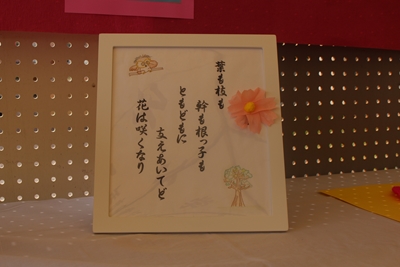 葉も枝も
幹も根っ子も
ともどもに
支えあいてど
花は咲くなり